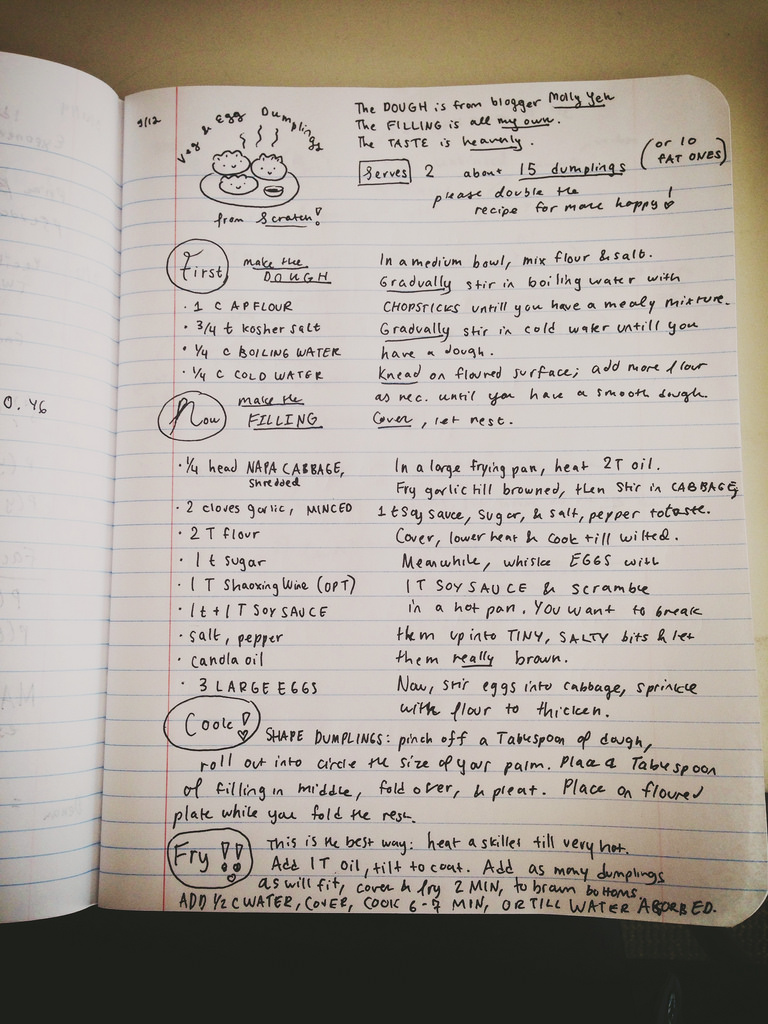 9/12
Veg & Egg Dumplings
from Scratch!
The DOUGH is from blogger Molly Yeh
The FILLING is all my own.
The TASTE is heavenly.
Serves 2 about 15 dumplings (or 10 FAT ONES)
please double the
recipe for more happy!
First make the DOUGH
· 1 C AP FLOUR
· 3/4 t kosher salt
· 1/4 c BOILING WATER
· 1/4 C COLD WATER
In a medium bowl, mix flour & salt.
Gradually stir in boiling water with
CHOPSTICKS untill you have a mealy mixture.
Gradually stir in cold water untill you
have a dough.
Knead on floured surface; add more flour
as nec. until you have a smooth dough.
Cover, let rest.
0.46
Now make the FILLING
· 1/4 head NAPA CABBAGE,
shredded
· 2 cloves garlic, MINCED
· 2 T flour
· 1 t sugar
· 1 T Shaoxing Wine (OPT)
· 1t + 1T SOY SAUCE
· salt, pepper
· canola oil
· 3 LARGE EGGS
In a large frying pan, heat 2T oil.
Fry garlic till browned, then stir in CABBAGE,
1 t soy sauce, sugar, & salt, pepper to taste.
Cover, lower heat & cook till wilted.
Meanwhile, whisk EGGS with
1 T SOY SAUCE & scramble
in a hot pan. You want to break
them up into TINY, SALTY bits & let
them really brown.
Now, stir eggs into cabbage, sprinkle
with flour to thicken.
Cook! SHAPE DUMPLINGS: pinch off a Tablespoon of dough,
roll out into circle the size of your palm. Place a Tablespoon
of filling in middle, fold over, & pleat. Place on floured
plate while you fold the rest.
Fry!! This is the best way: heat a skillet till very hot.
Add 1T oil, tilt to coat. Add as many dumplings
as will fit, cover & fry 2 MIN, to brown bottoms.
ADD 1/2 C WATER, COVER, COOK 6-7 MIN, OR TILL WATER ABSORBED.